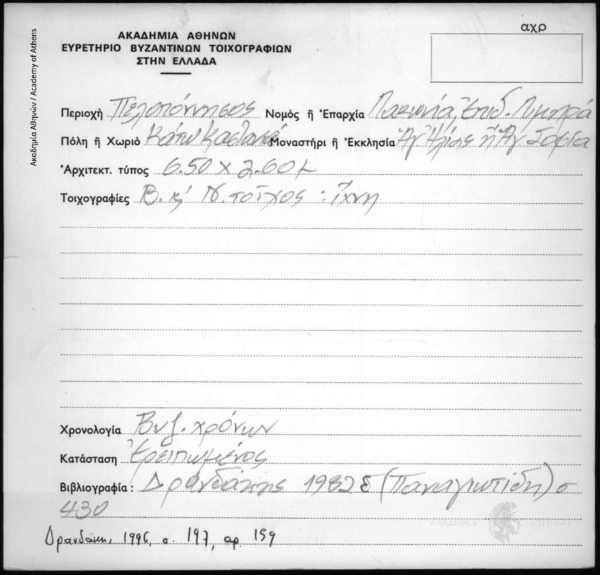 αχρ
ΑΚΑΔΗΜΙΑ ΑΘΗΝΩΝ
ΕΥΡΕΤΗΡΙΟ ΒΥΖΑΝΤΙΝΩΝ ΤΟΙΧΟΓΡΑΦΙΩΝ
ΣΤΗΝ ΕΛΛΑΔΑ
Ακαδημία Αθηνών / Academy of Athens
Περιοχή Πελοπόννησος Νομός ἤ Ἐπαρχία Λακωνία, Ἐπιδ. Λιμηρά
Πόλη ἤ Χωριό Κάτω Καστανιά Μοναστήρι ἤ Ἐκκλησία Ἁγ. Ἠλίας ἤ Ἁγ. Σοφία
Ἀρχιτεκτ. τύπος 6.50 Χ 2.60 μ
Τοιχογραφίες Β. κ' Ν. τοῖχος : ἴχνη
Χρονολογία Βυζ. χρόνων
Κατάσταση Ἐρειπωμένος
Βιβλιογραφία : Δρανδάκης 1982 ε (Παναγιωτίδη) σ
430
Δρανδάκ. 1996, σ. 197, αρ. 159